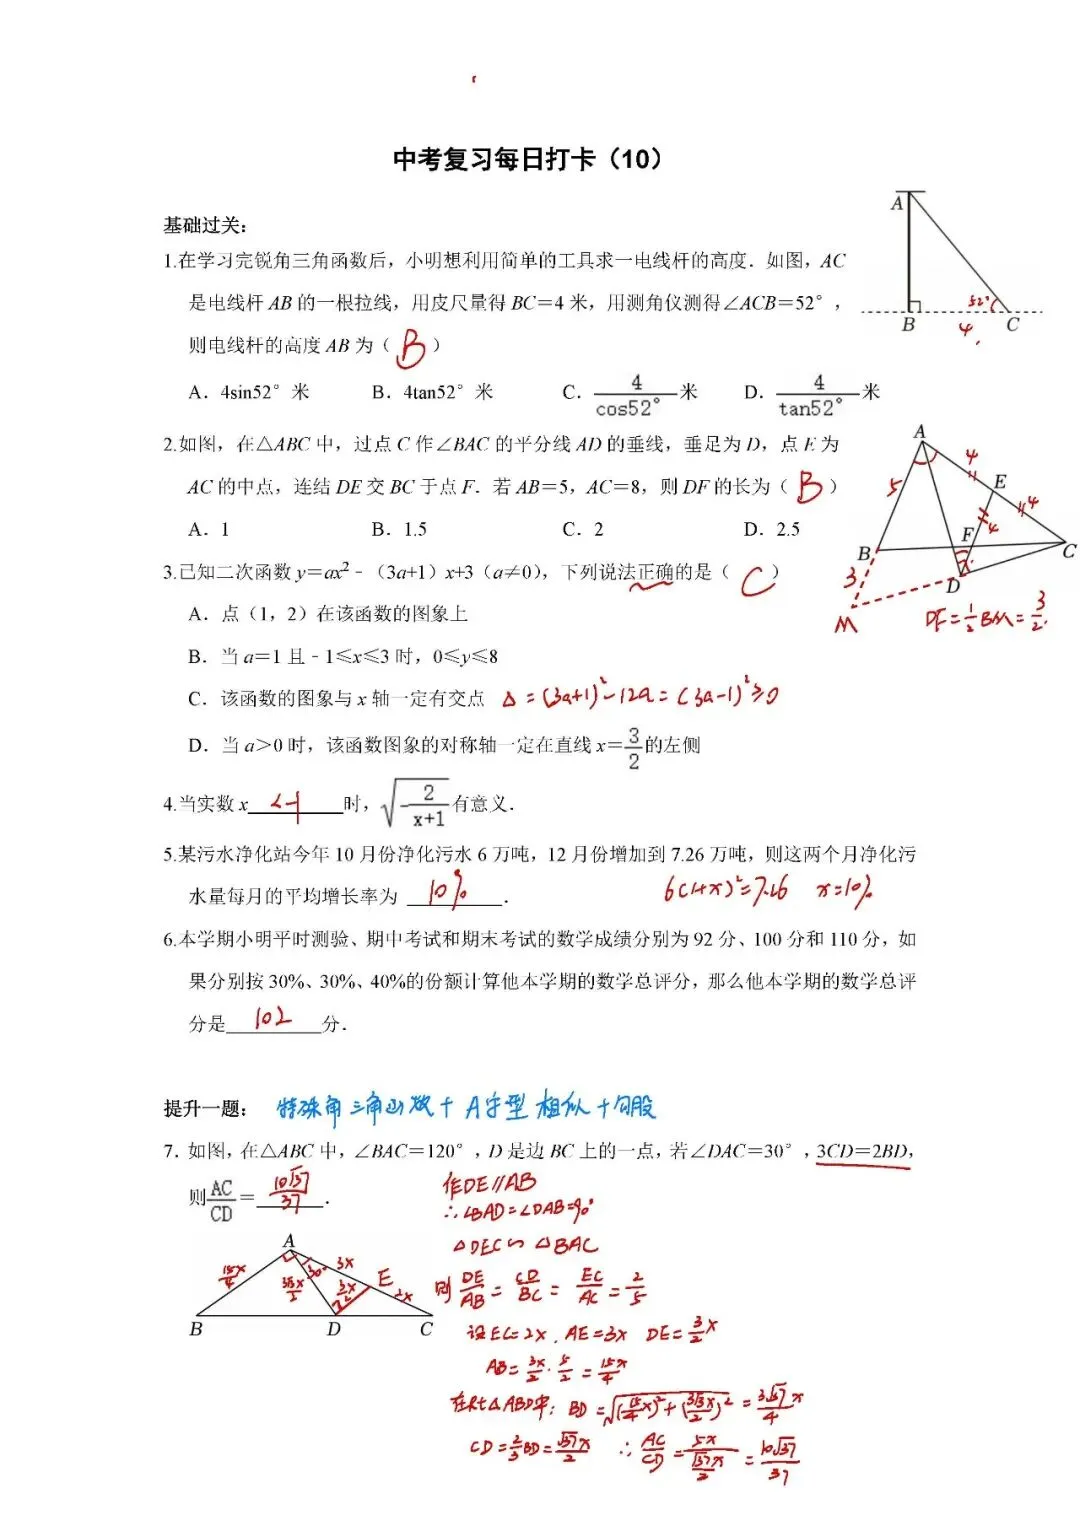 中考复习每日打卡（10）
基础过关：
1.在学习完锐角三角函数后，小明想利用简单的工具求一电线杆的高度．如图，AC
是电线杆 AB 的一根拉线，用皮尺量得 BC＝4 米，用测角仪测得∠ACB＝52°，
则电线杆的高度 AB 为（ B ）
A．4sin52° 米 B．4tan52° 米 C．4/cos52° 米 D．4/tan52° 米
A
52°
B 4 C
2.如图，在△ABC 中，过点 C 作∠BAC 的平分线 AD 的垂线，垂足为 D，点 E 为
AC 的中点，连结 DE 交 BC 于点 F．若 AB＝5，AC＝8，则 DF 的长为（ B ）
A．1 B．1.5 C．2 D．2.5
A
4
5 E
4
F 4
B C
3 D
M DF=1/2BM=3/2.
3.已知二次函数 y＝ax²﹣（3a+1）x+3（a≠0），下列说法正确的是（ C ）
A．点（1，2）在该函数的图象上
B．当 a＝1 且﹣1≤x≤3 时，0≤y≤8
C．该函数的图象与 x 轴一定有交点 Δ=(3a+1)²-12a=(3a-1)²≥0
D．当 a＞0 时，该函数图象的对称轴一定在直线 x＝3/2的左侧
4.当实数 x <-1 时，√(-2/(x+1)) 有意义．
5.某污水净化站今年 10 月份净化污水 6 万吨，12 月份增加到 7.26 万吨，则这两个月净化污
水量每月的平均增长率为 10% ． 6(1+x)²=7.26 x=10%
6.本学期小明平时测验、期中考试和期末考试的数学成绩分别为 92 分、100 分和 110 分，如
果分别按 30%、30%、40%的份额计算他本学期的数学总评分，那么他本学期的数学总评
分是 102 分．
提升一题： 特殊角三角函数+A字型相似+勾股
7．如图，在△ABC 中，∠BAC＝120°，D 是边 BC 上的一点，若∠DAC＝30°，3CD＝2BD，
则AC/CD＝ 10√37/37 ．
A
15x/4 3√3x/2 30° 3x
3x/2 E 2x
B D C
作DE∥AB
∴∠BAD=∠DAB=90°
△DEC∽△BAC
则 DE/AB=CD/BC=EC/AC=2/5
设EC=2x，AE=3x DE=3/2x
AB=3x/2·5/2=15x/4
在Rt△ABD中：BD=√((15/4x)²+(3√3x/2)²)=3√37/4x
CD=2/3BD=√37x/2 ∴AC/CD=5x/(√37x/2)=10√37/37